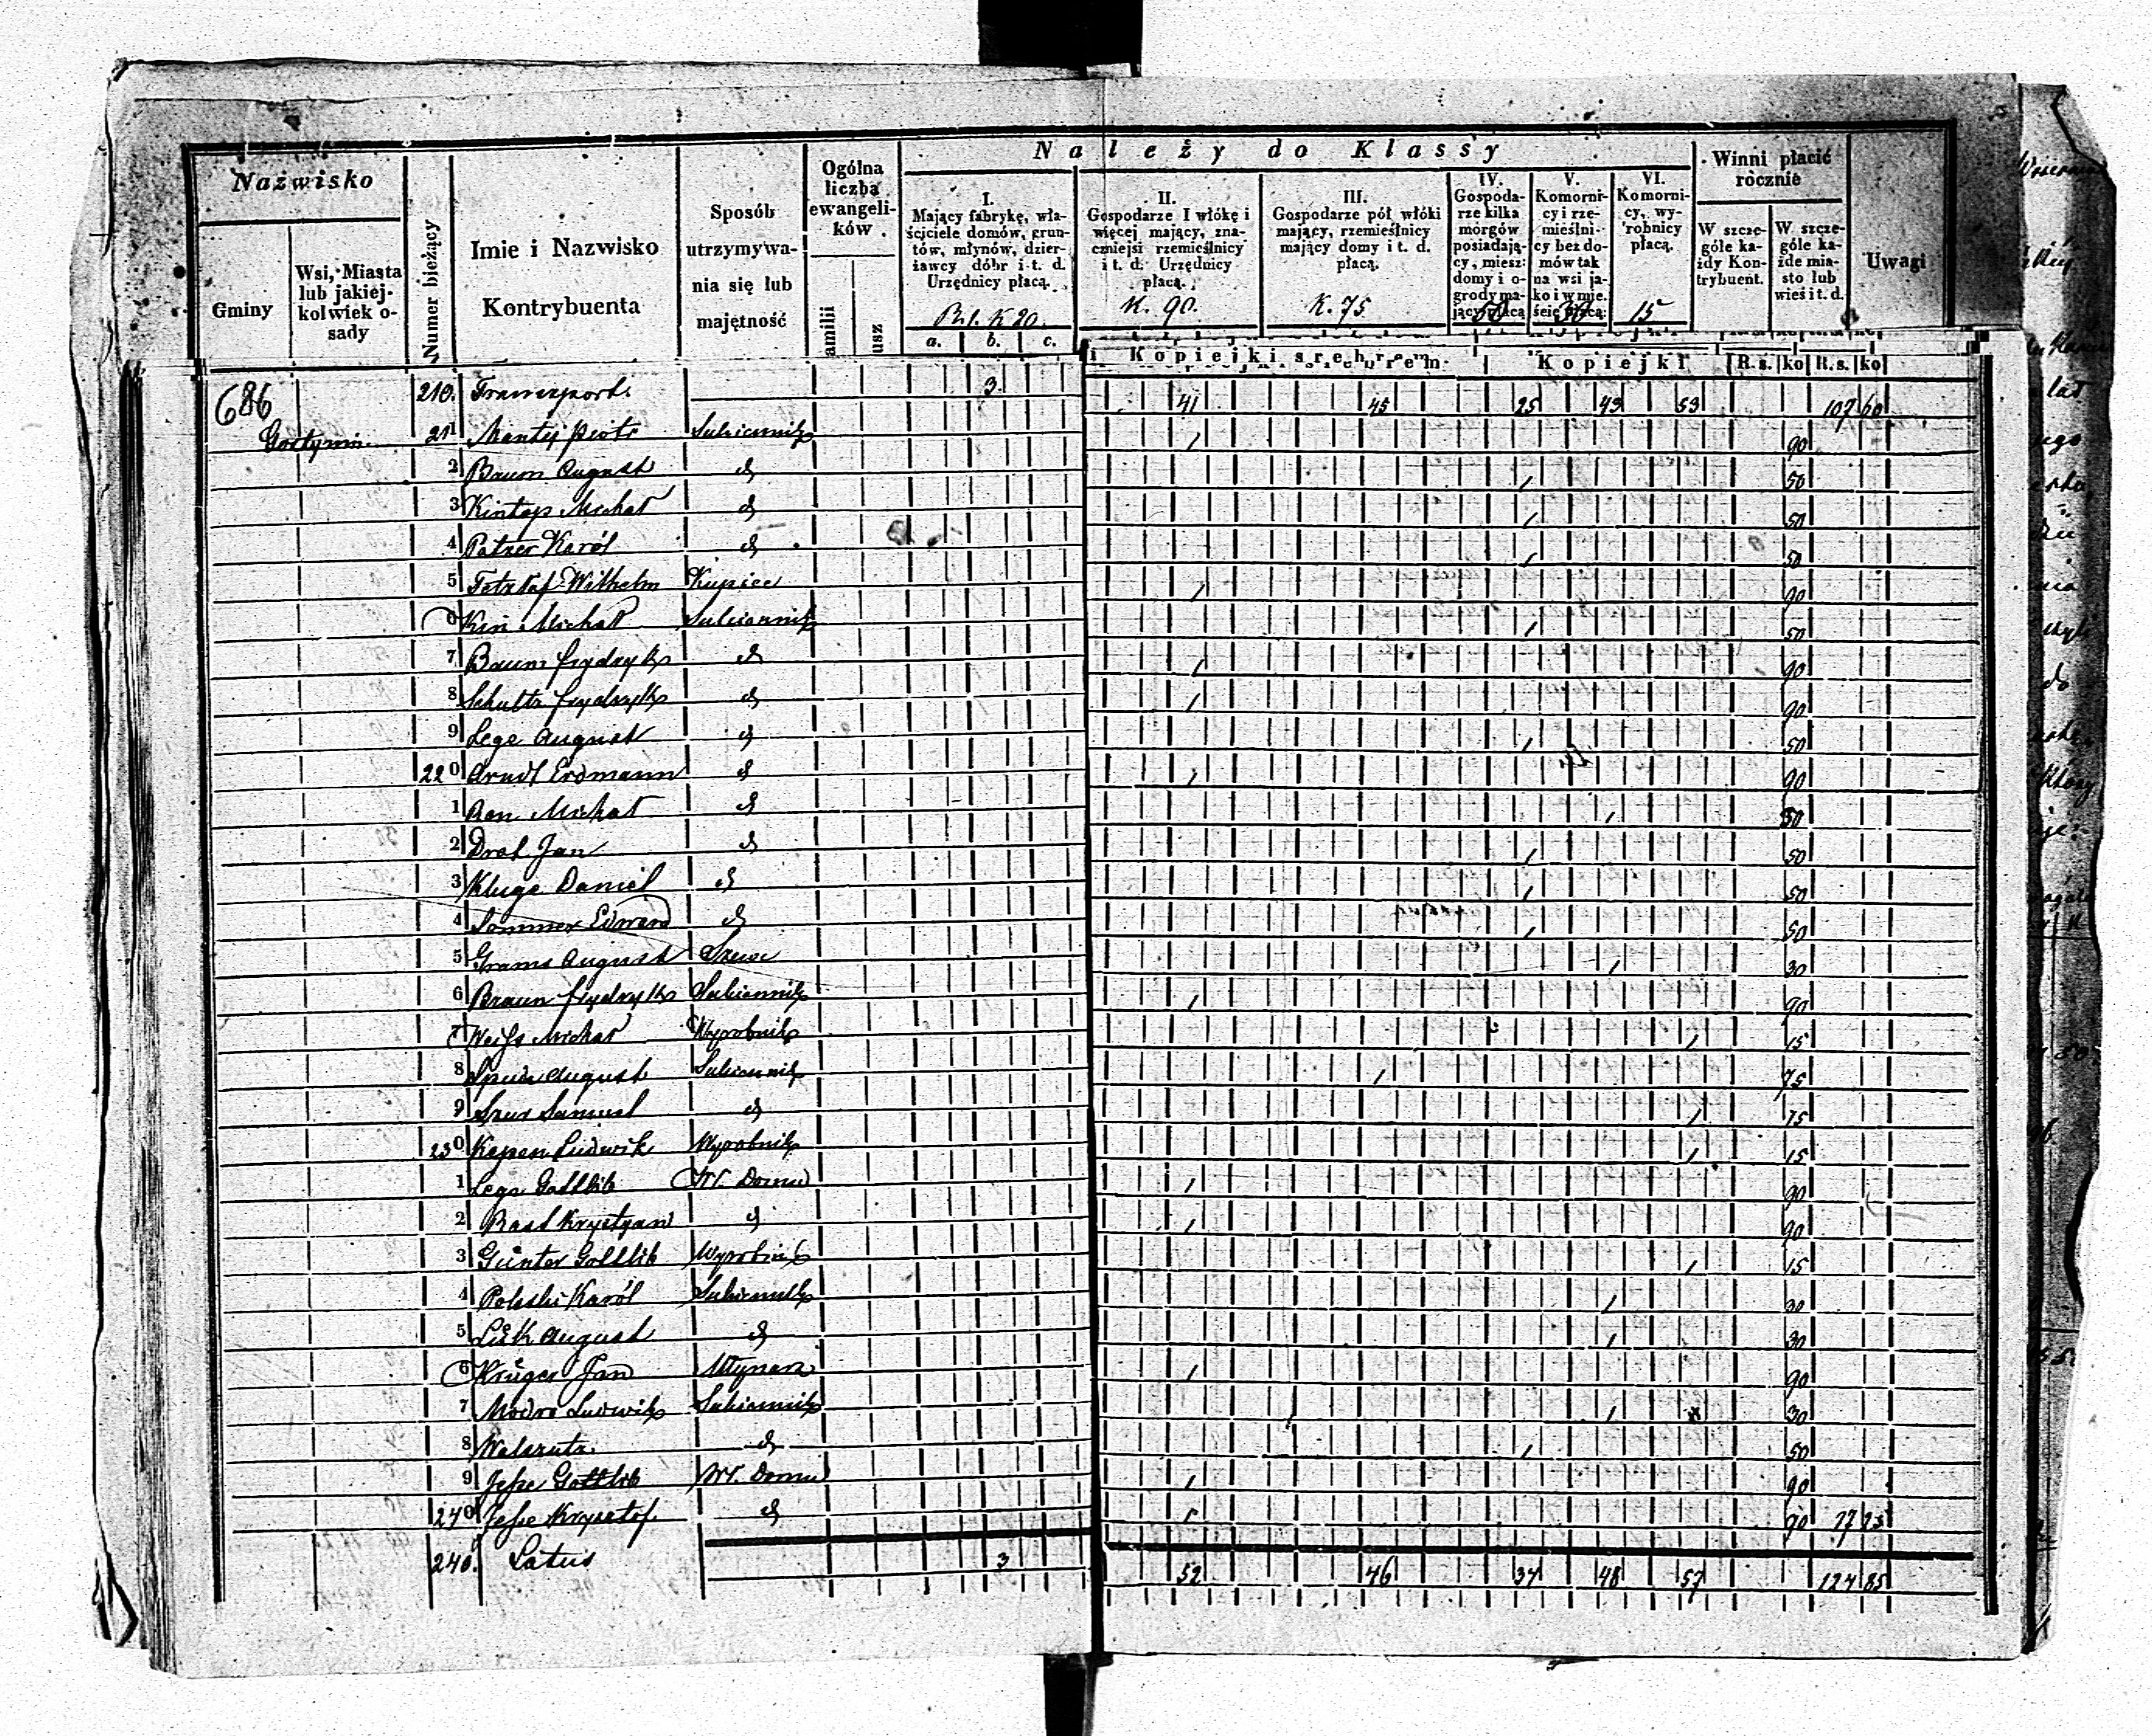 Należy do Klassy
Nazwisko
Gminy
Wsi, Miasta lub jakiej-kolwiek o-sady
Numer bieżący
Imie i Nazwisko Kontrybuenta
Sposób utrzymywa-nia się lub majętność
Ogólna liczba ewangeli-ków
amilii
usz
I. Mający fabrykę, wła-ściciele domów, grun-tów, młynów, dzier-żawcy dóbr i t. d. Urzędnicy płacą.
R. 1. K 20.
a. b. c.
II. Gospodarze I włókę i więcej mający, zna-czniejsi rzemieślnicy i t. d. Urzędnicy płacą.
K. 90.
III. Gospodarze pół włóki mający, rzemieślnicy mający domy i t. d. płacą.
K. 75
IV. Gospoda-rze kilka morgów posiadają-cy, miesz: domy i o-grody ma-jący płacą
50
V. Komorni-cy i rze-mieślni-cy bez do-mów tak na wsi ja-ko i w mie-ście płacą:
30
VI. Komorni-cy, wy-robnicy płacą.
15
Winni płacić rocznie
W szcze-góle ka-żdy Kon-trybuent.
W szcze-góle ka-żde mia-sto lub wieś i t. d.
Uwagi
Kopiejki srebrem. Kopiejki R.s. ko R.s. ko
686
210. Transport. 3. 41 45 25 43 53 107 60
Gostynin. 211 Mantej Piotr Sukiennik 1 90
2 Baum August d 1 50
3 Kintop Michał d 1 50
4 Patzer Karól d 1 50
5 Wilhelm Kupiec 1 90
6 Kin Michał Sukiennik 1 50
7 Baum Frydryk d 1 90
8 Schultz Frydryk d 1 90
9 Lege August d 1 50
220 Arndt Erdmann d 1 90
1 Ran Michał d 1 30
2 Drat Jan d 1 50
3 Kluge Daniel d 1 50
4 Sommer Edward d 1 50
5 Grams August Szewc 1 30
6 Braun Frydryk Sukiennik 1 90
7 Weiss Michał Wyrobnik 1 15
8 August Sukiennik 1 75
9 Samuel d 1 15
230 Kepen Ludwik Wyrobnik 1 15
1 Lege Gottlib Wł. Domu 1 90
2 Rast Krystyan d 1 90
3 Günter Gottlib Wyrobnik 1 15
4 Polski Karól Sukiennik 1 30
5 Lück August d 1 30
6 Krüger Jan Młynarz 1 90
7 Modro Ludwik Sukiennik 1 30
8 d 1 50
9 Jesse Gottlib Wł. Domu 1 90
240 Jesse Krysztof. d 1 90 17 25
240. Latus 3 52 46 34 48 57 124 85